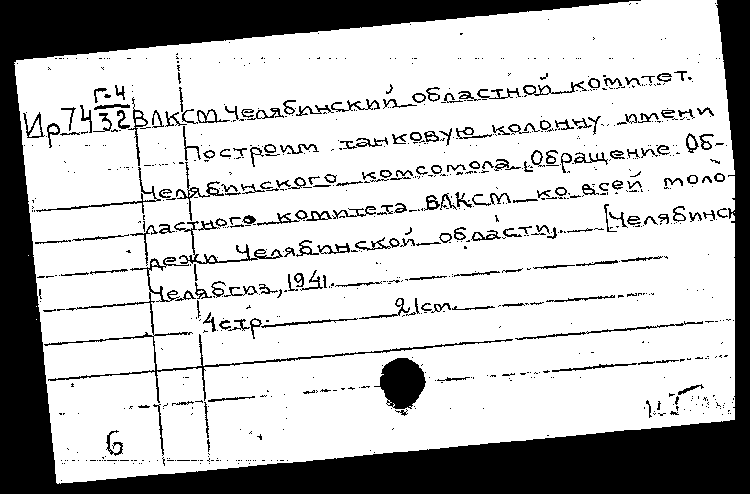 Г-4
Ир74 32 ВЛКСМ Челябинский областной комитет.
Построим танковую колонну имени
Челябинского комсомола [Обращение Об-
ластного комитета ВЛКСМ ко всей моло-
дежи Челябинской области, [Челябинск
Челябгиз, 1941.
4стр. 21см.
6